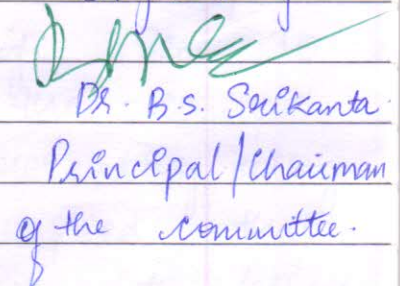 Dr. B.S. Srikanta.
Principal/Chairman
of the committee.